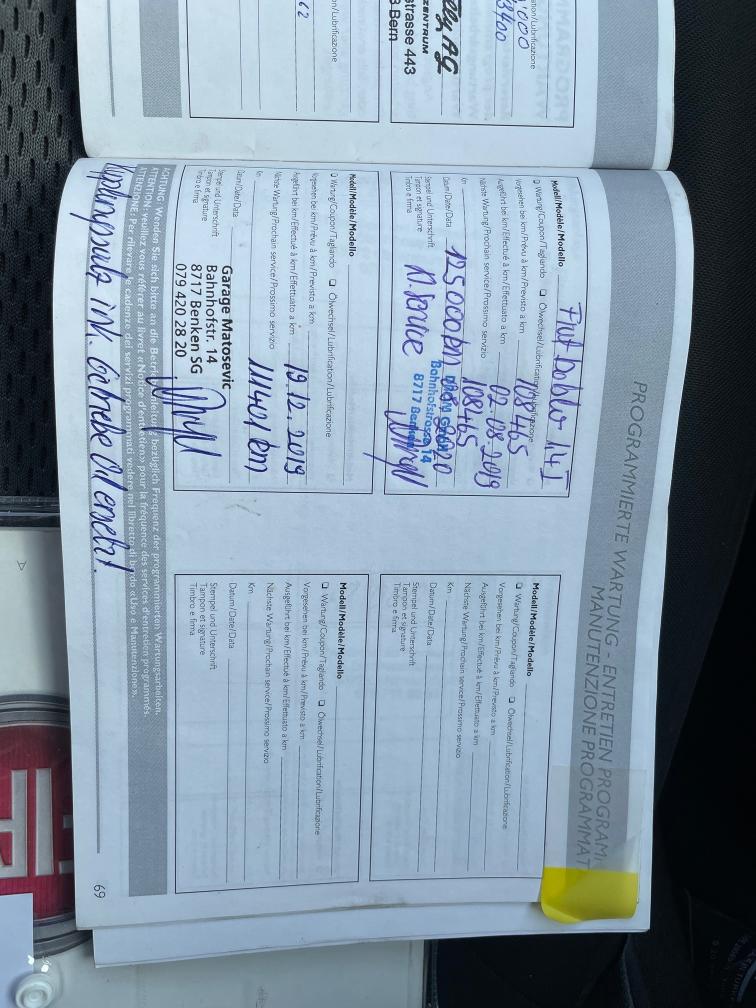 000
tion/Lubrificazione
3400
ZENTRUM
strasse 443
Bern
on/Lubrificazione
62
PROGRAMMIERTE WARTUNG - ENTRETIEN PROGRAM
MANUTENZIONE PROGRAMMAT
Modell/Modèle/Modello Fiat Doblo 1.4 I
❏ Wartung/Coupon/Tagliando ❏ Ölwechsel/Lubrification/Lubrificazione
Vorgesehen bei km/Prévu à km/Previsto a km 108465
Ausgeführt bei km/Effectué à km/Effettuato a km 02.08.2019
Nächste Wartung/Prochain service/Prossimo servizio 108465
Km
Datum/Date/Data 125000km 08.2020
Stempel und Unterschrift
Tampon et signature
Timbro e firma
N. Service
GmbH
Bahnhofstrasse 14
8717 Benken
Modell/Modèle/Modello
❏ Wartung/Coupon/Tagliando ❏ Ölwechsel/Lubrification/Lubrificazione
Vorgesehen bei km/Prévu à km/Previsto a km
Ausgeführt bei km/Effectué à km/Effettuato a km 19.12.2019
Nächste Wartung/Prochain service/Prossimo servizio
Km 111401 km
Datum/Date/Data
Stempel und Unterschrift
Tampon et signature
Timbro e firma
Garage Matosevic
Bahnhofstr. 14
8717 Benken SG
079 420 28 20
Modell/Modèle/Modello
❏ Wartung/Coupon/Tagliando ❏ Ölwechsel/Lubrification/Lubrificazione
Vorgesehen bei km/Prévu à km/Previsto a km
Ausgeführt bei km/Effectué à km/Effettuato a km
Nächste Wartung/Prochain service/Prossimo servizio
Km
Datum/Date/Data
Stempel und Unterschrift
Tampon et signature
Timbro e firma
Modell/Modèle/Modello
❏ Wartung/Coupon/Tagliando ❏ Ölwechsel/Lubrification/Lubrificazione
Vorgesehen bei km/Prévu à km/Previsto a km
Ausgeführt bei km/Effectué à km/Effettuato a km
Nächste Wartung/Prochain service/Prossimo servizio
Km
Datum/Date/Data
Stempel und Unterschrift
Tampon et signature
Timbro e firma
ACHTUNG: Wenden Sie sich bitte an die Betriebsanleitung bezüglich Frequenz der programmierten Wartungsarbeiten.
ATTENTION: veuillez vous référer au livret «Notice d'entretien» pour la fréquence des services d'entretien programmés.
ATTENZIONE: Per rilevare le cadenze dei servizi programmati vedere nel libretto di bordo «Uso e Manutenzione».
Kupplungssatz ink. Getriebe Öl ersetzt!
69